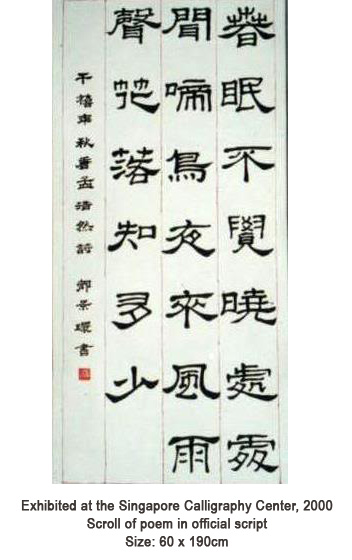 春眠不覺曉處處
聞啼鳥夜來風雨
聲花落知多少
千禧年秋孟浩然詩 景環書
Exhibited at the Singapore Calligraphy Center, 2000
Scroll of poem in official script
Size: 60 x 190cm